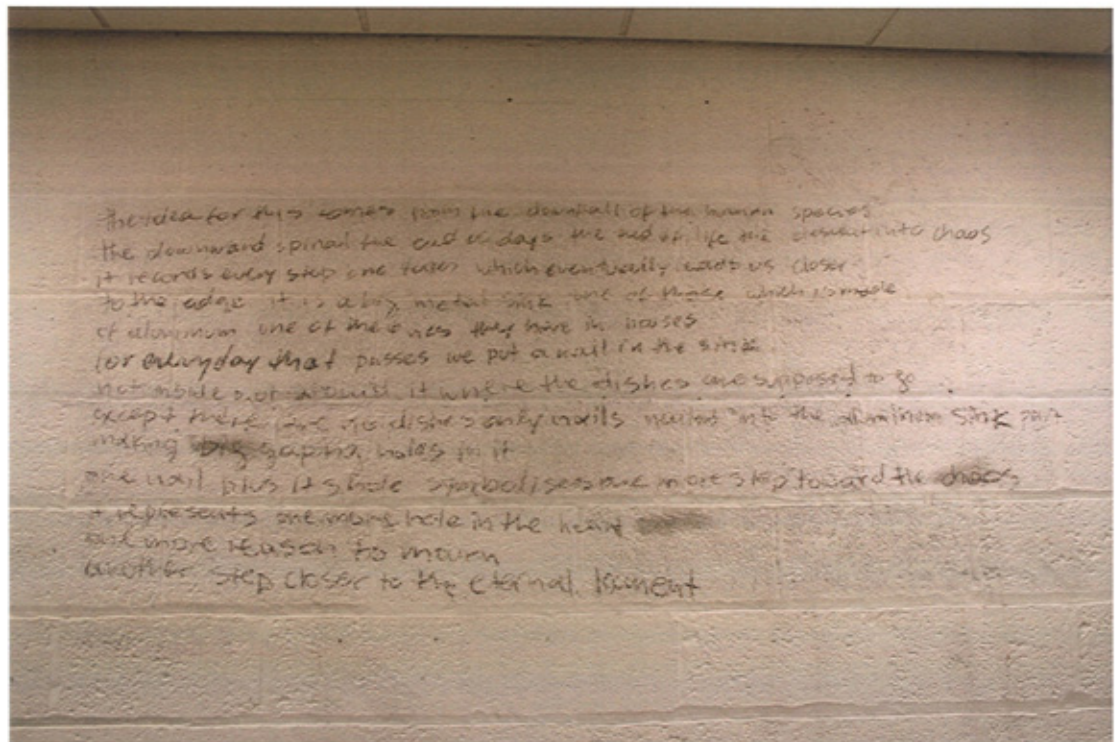 the idea for this comes from the downfall of the human species
the downward spiral the end of days the end of life the descent into chaos
it records every step one takes which eventually leads us closer
to the edge it is a big metal sink one of those which is made
of aluminum one of the ones they have in houses
for everyday that passes we put a nail in the sink
not inside but around it where the dishes are supposed to go
except there are no dishes only nails nailed into the aluminum sink part
making big gaping holes in it
one nail plus its hole symbolises one more step toward the chaos
it represents one more hole in the heart
one more reason to mourn
another step closer to the eternal lament